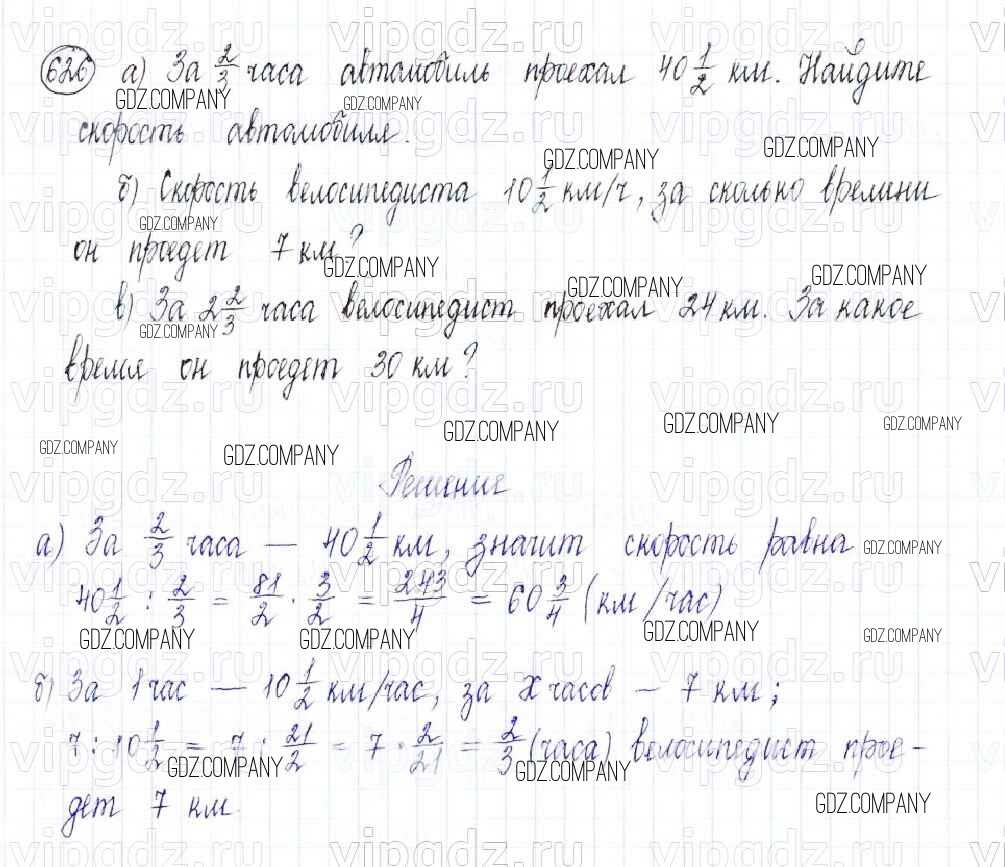 626 а) За 2/3 часа автомобиль проехал 40 1/2 км. Найдите
скорость автомобиля.
б) Скорость велосипедиста 10 1/2 км/ч, за сколько времени
он проедет 7 км?
в) За 2 2/3 часа велосипедист проехал 24 км. За какое
время он проедет 30 км?
Решение
а) За 2/3 часа — 40 1/2 км, значит скорость равна
40 1/2 : 2/3 = 81/2 · 3/2 = 243/4 = 60 3/4 (км/час)
б) За 1 час — 10 1/2 км/час, за x часов — 7 км;
7 : 10 1/2 = 7 : 21/2 = 7 · 2/21 = 2/3 (часа) велосипедист прое-
дет 7 км.
GDZ.COMPANY
vipgdz.ru